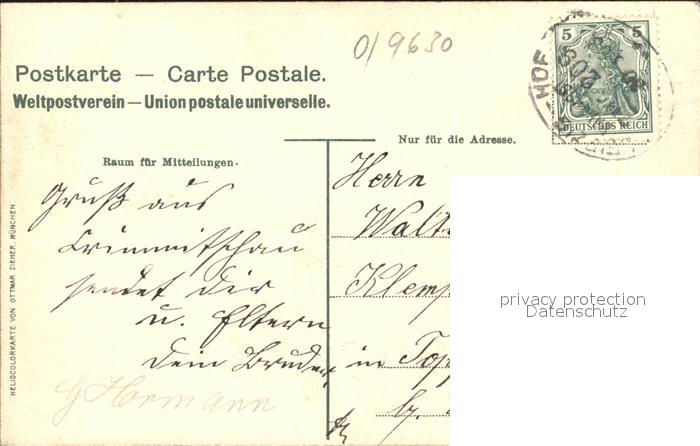 0/9630
5 5
DEUTSCHES REICH
HOF
Postkarte — Carte Postale.
Weltpostverein — Union postale universelle.
Nur für die Adresse.
Raum für Mitteilungen.
Gruß aus
Crimmitschau
sendet dir
u. Eltern
dein Bruder
G Hormann
Herrn
Walt
Klemp
in Top
b.
privacy protection
Datenschutz
HELIOCOLORKARTE VON OTTMAR ZIEHER, MÜNCHEN